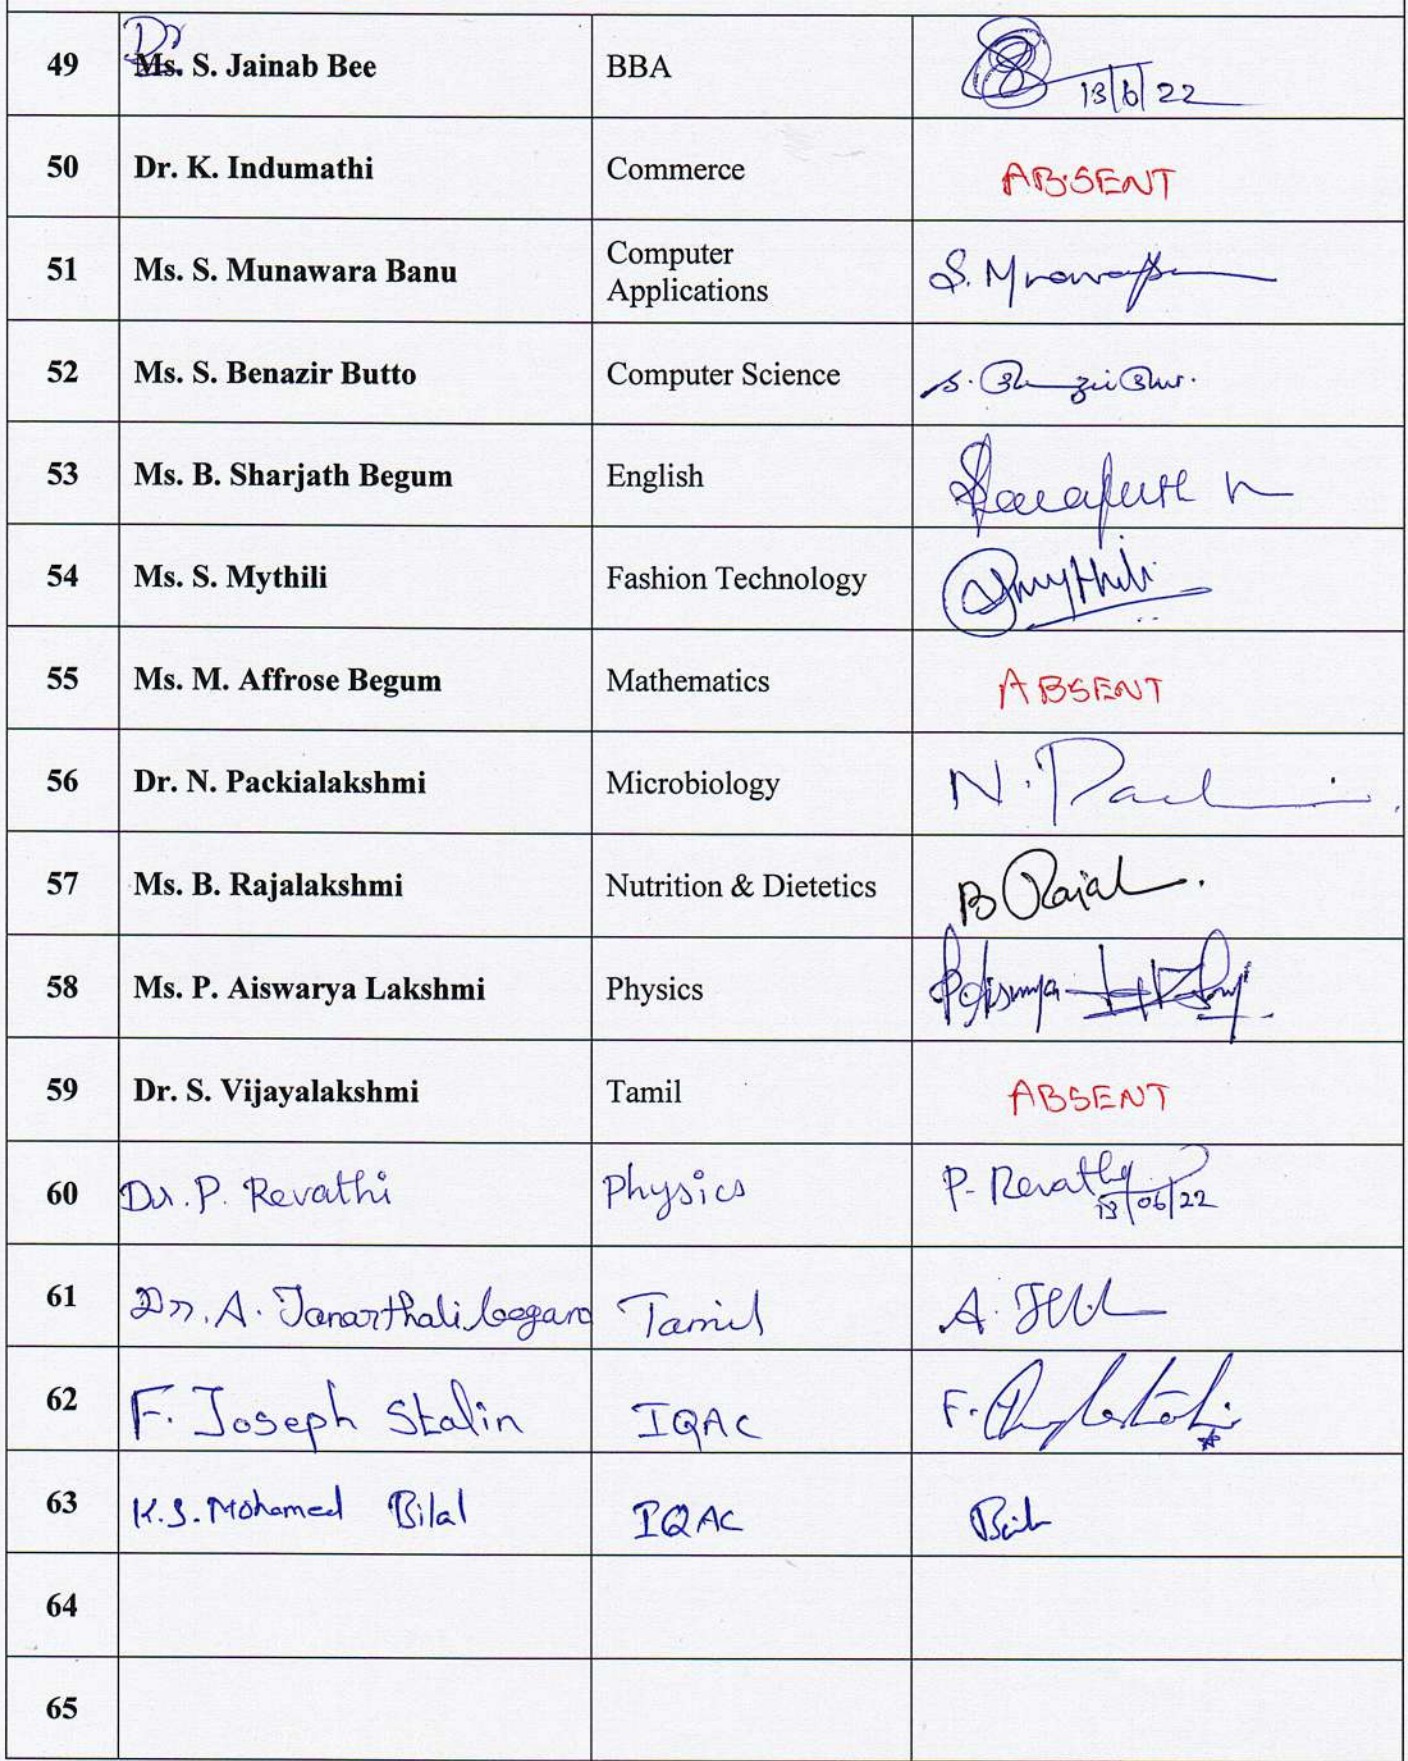 49 Dr Ms. S. Jainab Bee BBA 13/6/22
50 Dr. K. Indumathi Commerce ABSENT
51 Ms. S. Munawara Banu Computer
Applications S.
52 Ms. S. Benazir Butto Computer Science S.
53 Ms. B. Sharjath Begum English
54 Ms. S. Mythili Fashion Technology Smythili
55 Ms. M. Affrose Begum Mathematics ABSENT
56 Dr. N. Packialakshmi Microbiology N.
57 Ms. B. Rajalakshmi Nutrition & Dietetics B Rajal
58 Ms. P. Aiswarya Lakshmi Physics
59 Dr. S. Vijayalakshmi Tamil ABSENT
60 Dr. P. Revathi Physics P. Revathy
13/06/22
61 Dr. A. Tamil A.
62 F. Joseph Stalin IQAC F.
63 K.S. Mohamed Bilal IQAC
64
65